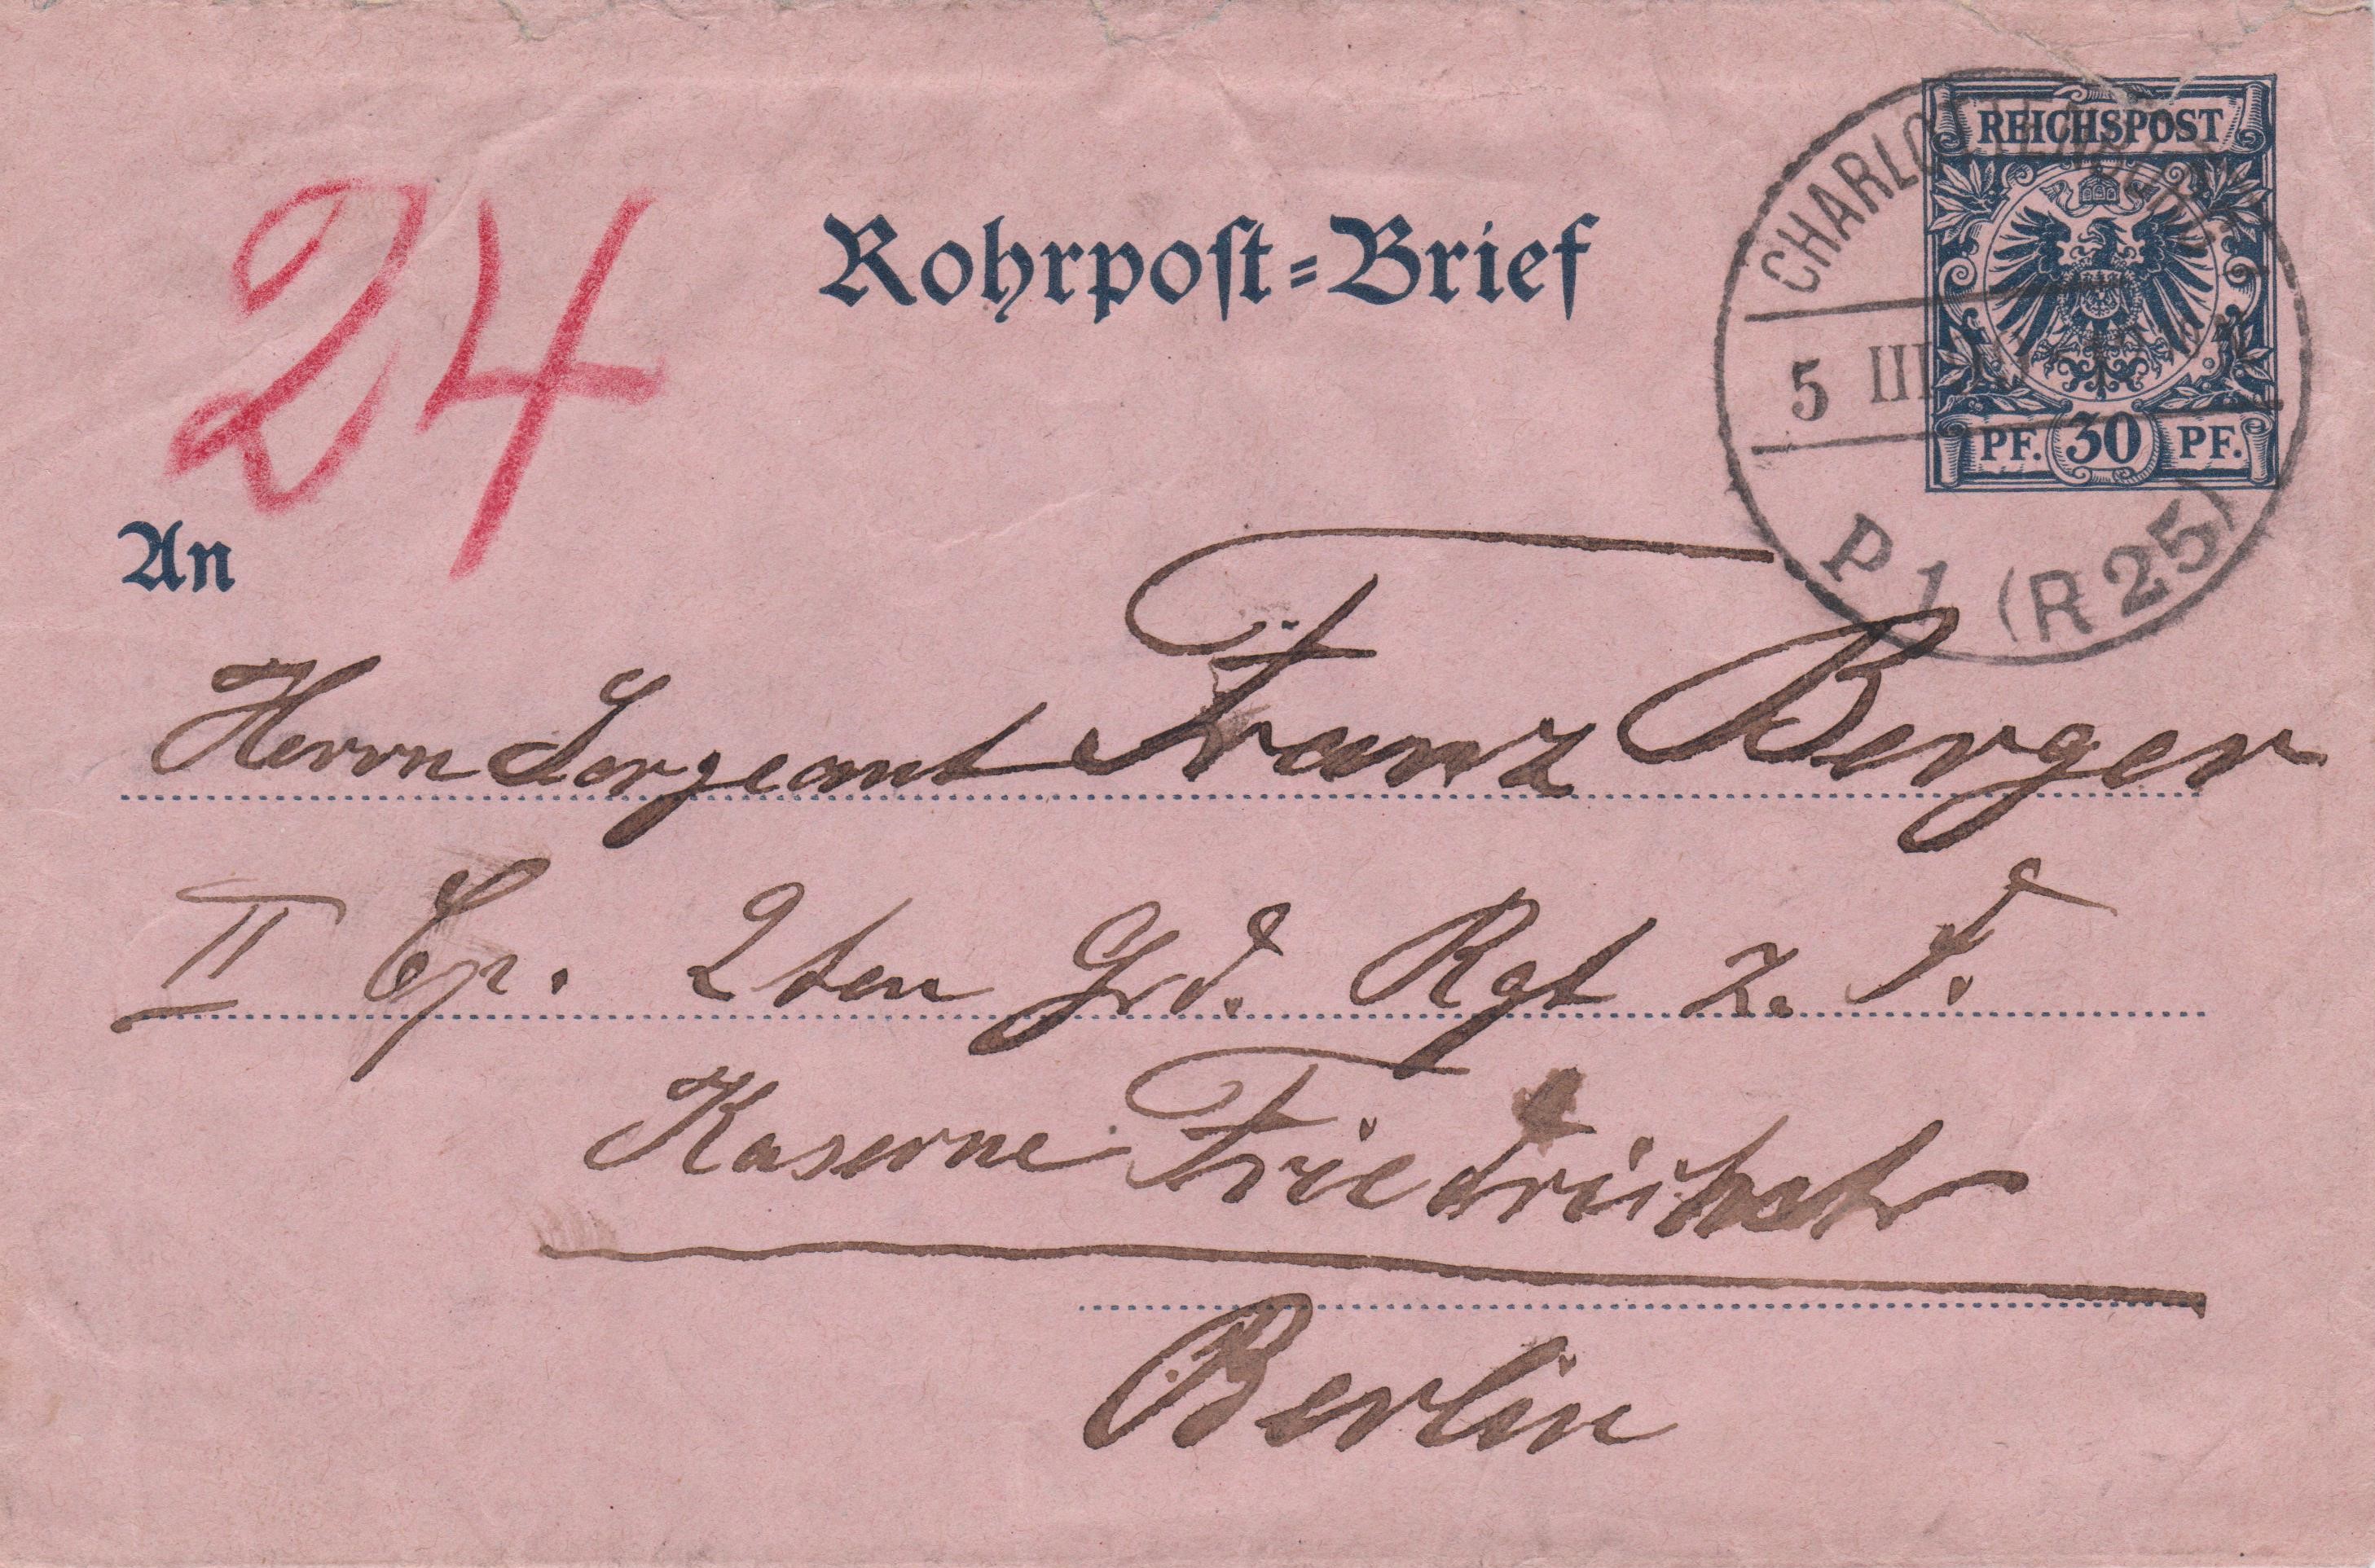 REICHSPOST
CHARLOTTENBURG
24
Rohrpoſt-Brief
5 III
PF. 30 PF.
P 1 (R 25)
An
Herrn Sergeant Franz Berger
II Cp. 2ten Grd. Rgt z. F.
Kaserne Friedrichst
Berlin